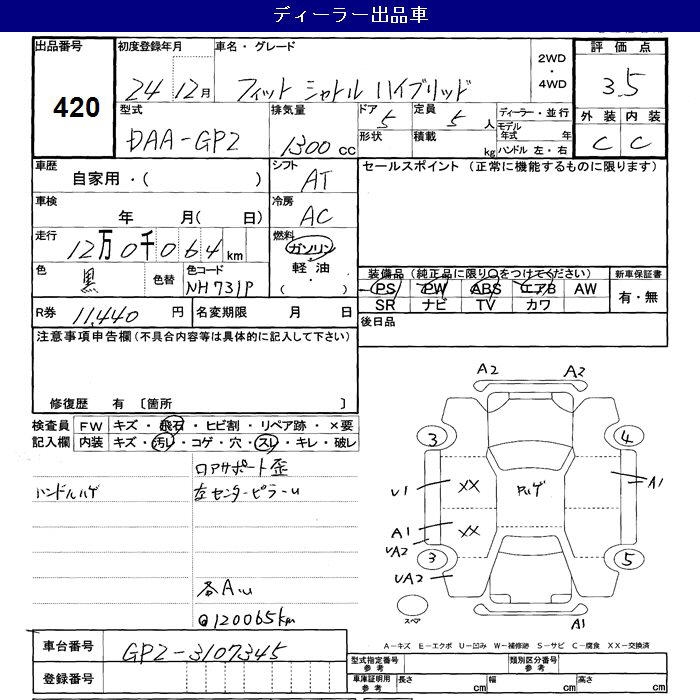 ディーラー出品車
出品番号
420
初度登録年月
24 12月
車名・グレード
フィット シャトル ハイブリッド
2WD
・
4WD
評価点
3.5
型式
DAA-GP2
排気量
1300 cc
ドア
5
定員
5 人
ディーラー・並行
モデル年式 年
ハンドル 左・右
形状
積載
kg
外装 内装
C C
車歴
自家用・( )
シフト
AT
セールスポイント (正常に機能するものに限ります)
車検
年 月( 日)
冷房
AC
走行
12万0千064 km
燃料
ガソリン
軽油
( )
色
黒
色替
色コード
NH731P
装備品 (純正品に限り○をつけてください)
PS PW ABS エアB AW
SR ナビ TV カワ
新車保証書
有・無
R券 11,440 円
名変期限 月 日
後日品
注意事項申告欄(不具合内容等は具体的に記入して下さい)
修復歴 有 〔箇所 〕
検査員記入欄
FW キズ・飛石・ヒビ割・リペア跡・×要
内装 キズ・汚レ・コゲ・穴・スレ・キレ・破レ
ロアサポート歪
ハンドルハゲ
左センターピラーU
各A.U
@120065km
A2 A2
3 4
U1 XX アルゲ A1
A1 XX
UA2
3 5
UA2
スペア
A1
A-キズ E-エクボ U-凹み W-補修跡 S-サビ C-腐食 XX-交換済
車台番号
GP2-3107345
登録番号
型式指定番号
参考
類別区分番号
参考
車庫証明用
参考
長さ cm
幅 cm
高さ cm